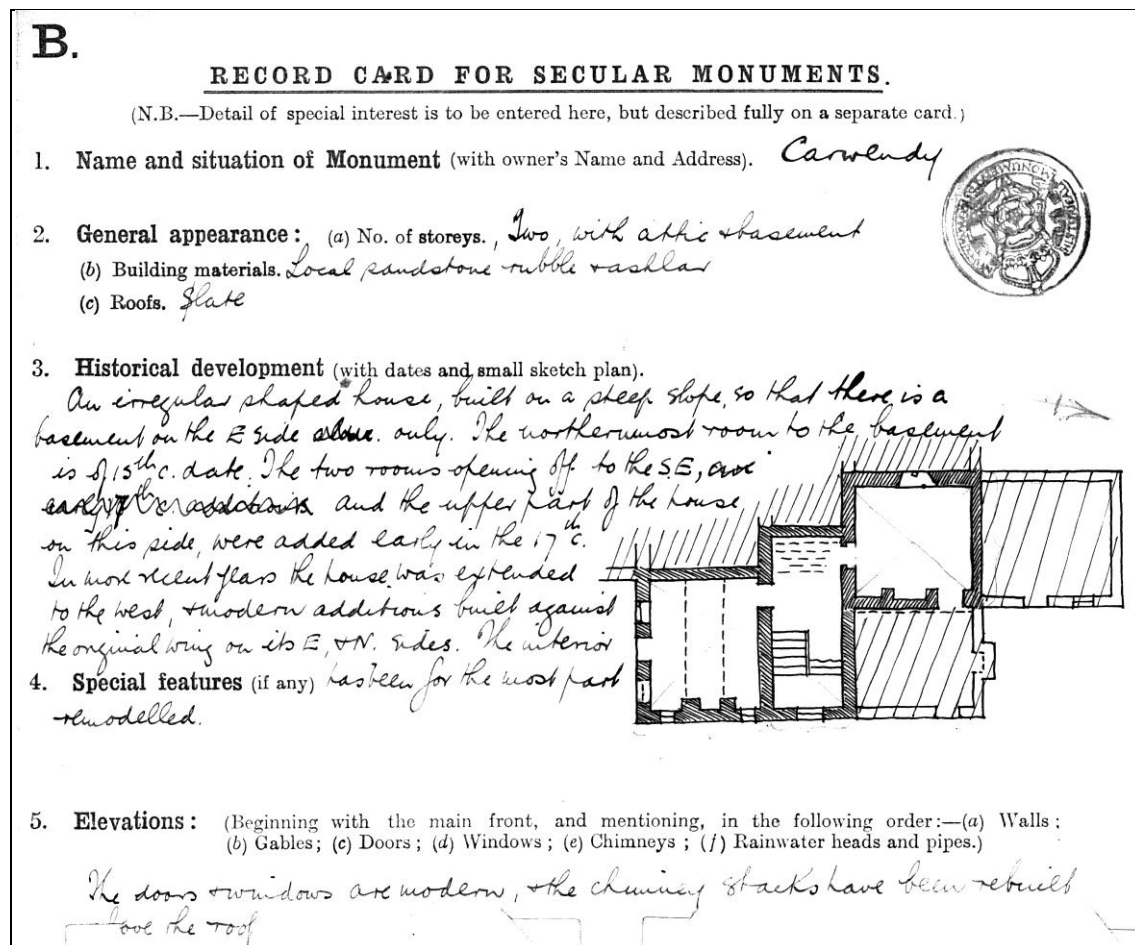 B.
RECORD CARD FOR SECULAR MONUMENTS.
(N.B.—Detail of special interest is to be entered here, but described fully on a separate card.)
1. Name and situation of Monument (with owner's Name and Address). Carwendy
2. General appearance: (a) No. of storeys., Two, with attic & basement
(b) Building materials. Local sandstone rubble & ashlar
(c) Roofs. Slate
3. Historical development (with dates and small sketch plan).
An irregular shaped house, built on a steep slope, so that there is a
basement on the E side only. The northernmost room to the basement
is of 15th c. date. The two rooms opening off to the S.E,
and the upper part of the house
on this side, were added early in the 17th c.
In more recent years the house was extended
to the west, & modern additions built against
the original wing on its E, & N. sides. The interior
4. Special features (if any) has been for the most part
remodelled.
5. Elevations: (Beginning with the main front, and mentioning, in the following order:—(a) Walls;
(b) Gables; (c) Doors; (d) Windows; (e) Chimneys; (f) Rainwater heads and pipes.)
The doors & windows are modern, & the chimney stacks have been rebuilt
the roof